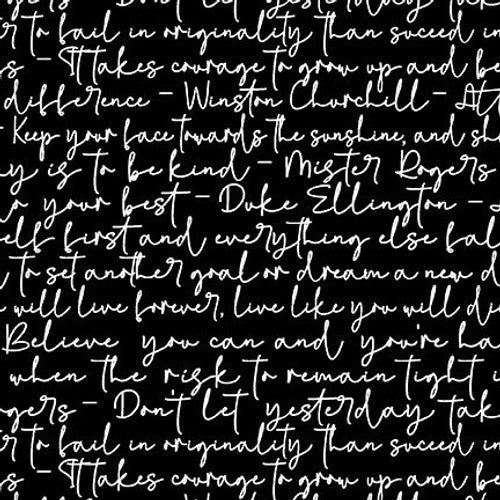 Don't let yesterday tak
r to fail in originality than suceed in
rs - It takes courage to grow up and be
difference - Winston Churchill - At
Keep your face towards the sunshine, and sh
y is to be kind - Mister Rogers
o your best - Duke Ellington -
elf first and everything else fal
to set another goal or dream a new d
will live forever, live like you will di
Believe you can and you're ha
when the risk to remain tight i
gers - Don't let yesterday tak
r to fail in originality than suceed in
rs - It takes courage to grow up and be